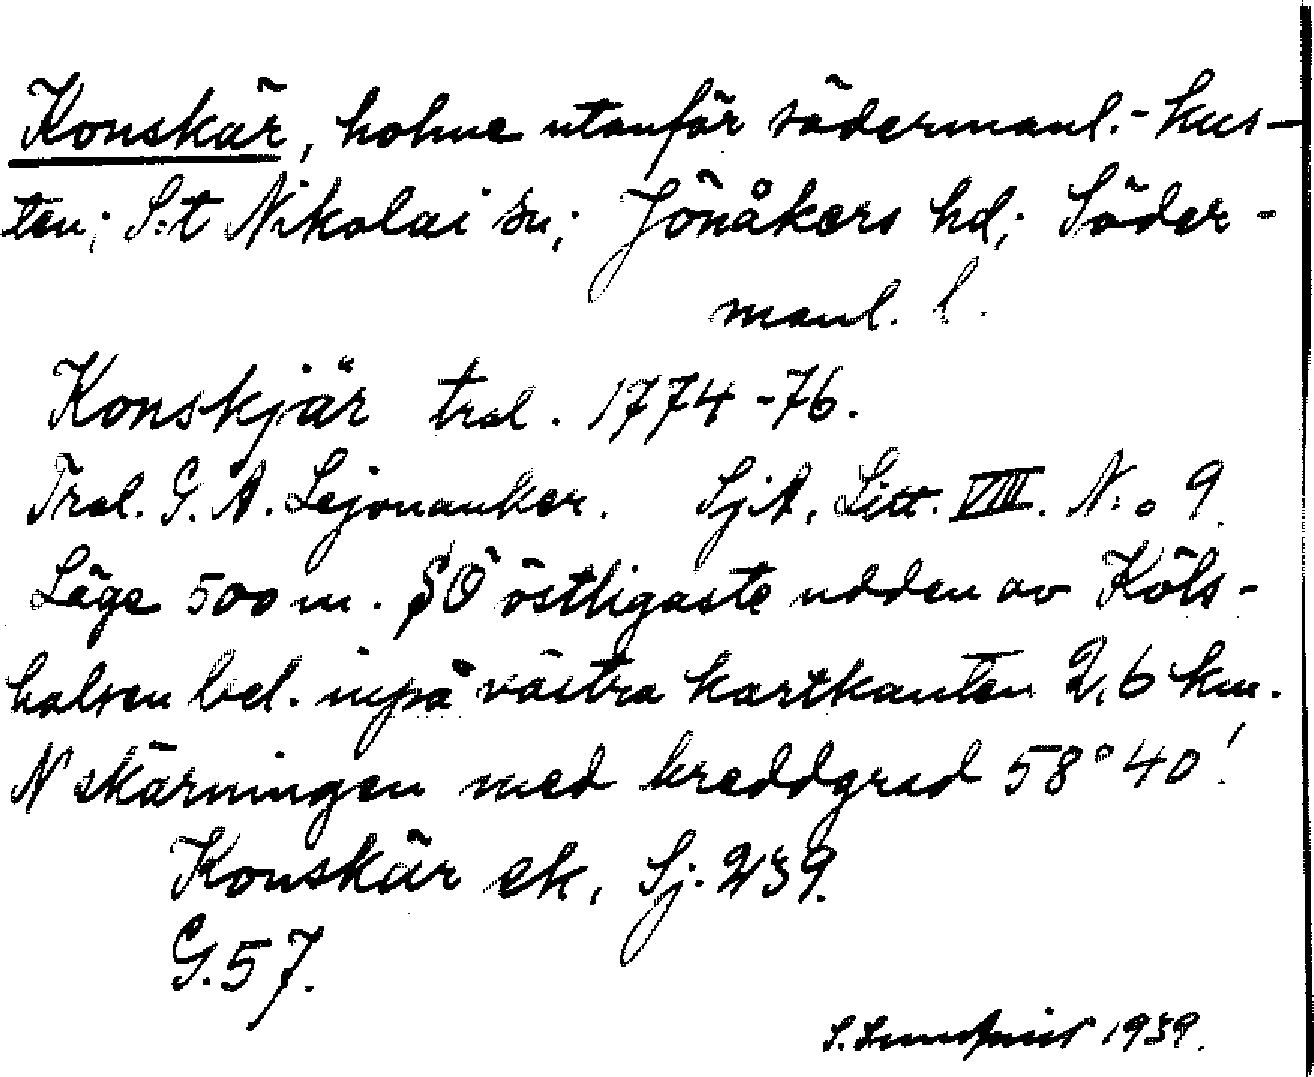 Konskär, holme utanför södermanl.-kus-
ten; S:t Nikolai sn; Jönåkers hd; Söder-
manl. l.
Konskjär tral. 1774-76.
Tral. G. A. Lejonanker. SjA. Litt. VIII. N:o 9.
Läge 500 m. SO östligaste udden av Köls-
halsen bel. inpå västra kartkanten 2,6 km.
N skärningen med breddgrad 58°40'
Konskär ek, Sj. 239.
G.57.
S. 1939.